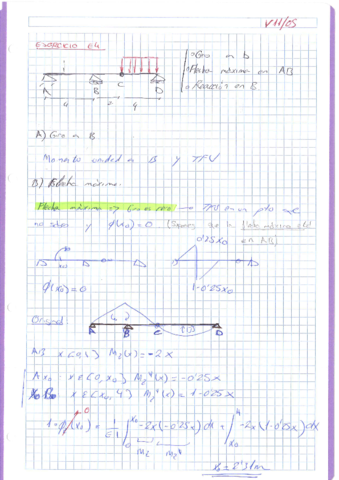 V11/05
EJERCICIO E4
Giro en b
Flecha máxima en AB
Reacción en B
A B C D
4 2 4
A) Giro en B
Momento unidad en B y TFV
B) Flecha máxima.
Flecha máxima => Giro es cero → TFV en un pto que
no sabes y φ(x₀)=0 (Supones que la flecha máxima está
en AB)
0'25x₀
x₀
φ(x₀)=0
1-0'25x₀
Original
A B C D
AB x∈(0,4) M₂(x)=-2x
A x₀ x∈(0,x₀) M₂*(x)=-0'25x
x₀ B x∈(x₀,4) M₂*(x)=1-0'25x
1·φ(x₀) = 1/EI ∫₀^x₀ -2x(-0'25x)dx + ∫_x₀^4 -2x(1-0'25x)dx
0
M₂ M₂*
x₀=2'31m